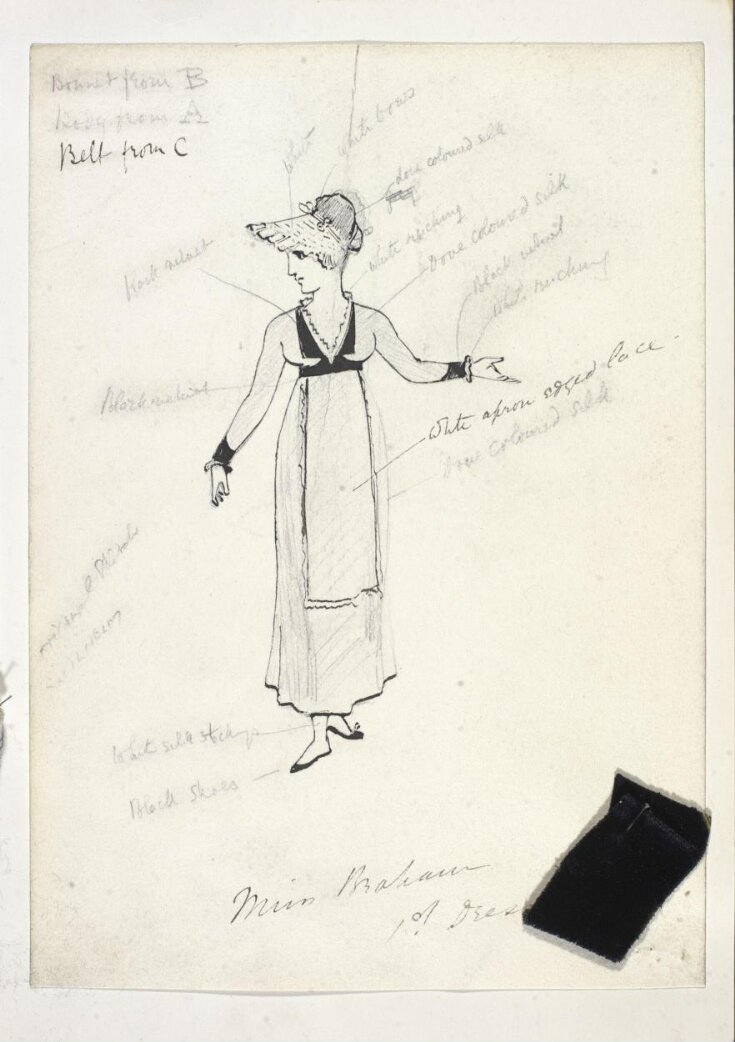 Bonnet from B
Body from A
Belt from C
White
White bows
dove coloured silk
White ruching
Dove coloured silk
Black velvet
White ruching
Black velvet
Black velvet
White apron edged lace.
Dove coloured silk
White silk stockings
Black Shoes
Miss Braham
1st Dress